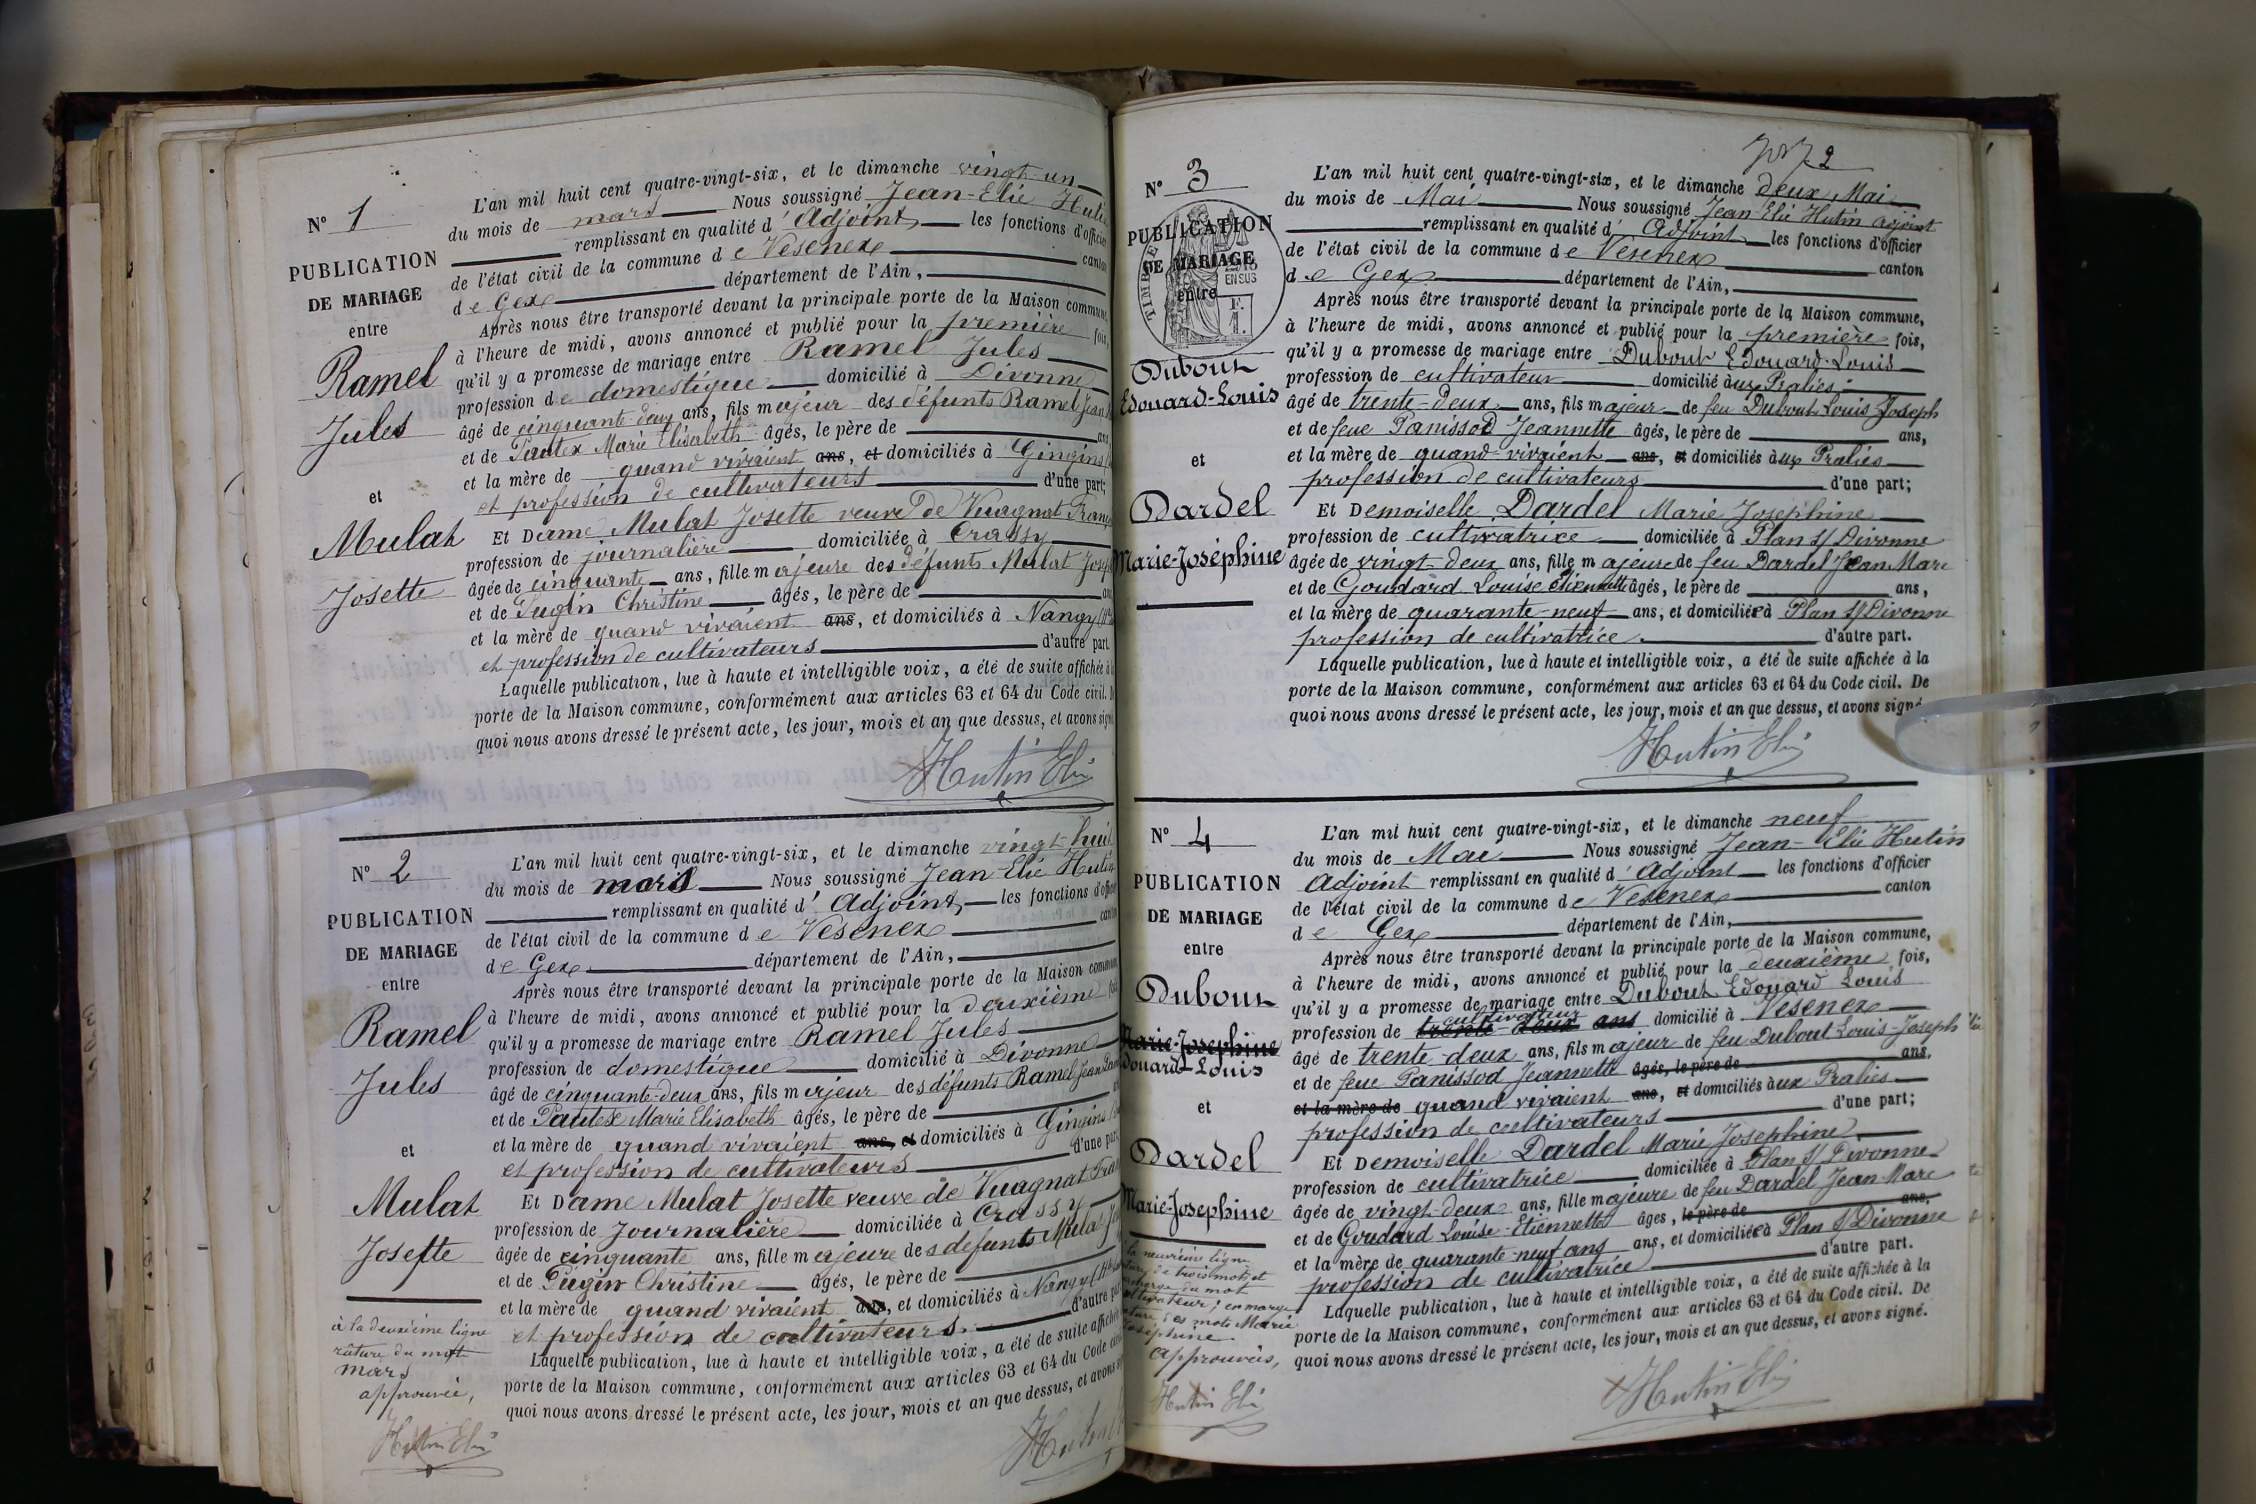 N° 1
PUBLICATION
DE MARIAGE
entre
Ramel
Jules
et
Mulat
Josette
L'an mil huit cent quatre-vingt-six, et le dimanche vingt-un
du mois de mars Nous soussigné Jean-Elie Hutin
remplissant en qualité d'Adjoint les fonctions d'officier
de l'état civil de la commune de Vesenex canton
de Gex département de l'Ain,
Après nous être transporté devant la principale porte de la Maison commune,
à l'heure de midi, avons annoncé et publié pour la première fois,
qu'il y a promesse de mariage entre Ramel Jules
profession de domestique domicilié à Divonne
âgé de cinquante deux ans, fils majeur des défunts Ramel Jean
et de Pautex Marie Elisabeth âgés, le père de ans
et la mère de quand vivaient ans, et domiciliés à Gingins
et profession de cultivateurs d'une part;
Et Dame Mulat Josette veuve de Vuagnat
profession de journalière domiciliée à Crassy
âgée de cinquante ans, fille majeure des défunts Mulat
et de Pugin Christine âgés, le père de
et la mère de quand vivaient ans, et domiciliés à Nangy
et profession de cultivateurs d'autre part.
Laquelle publication, lue à haute et intelligible voix, a été de suite affichée à
porte de la Maison commune, conformément aux articles 63 et 64 du Code civil.
quoi nous avons dressé le présent acte, les jour, mois et an que dessus, et avons
Hutin Elie
N° 2
PUBLICATION
DE MARIAGE
entre
Ramel
Jules
et
Mulat
Josette
à la deuxième ligne
râture du mot
mars
approuvée,
Hutin Elie
L'an mil huit cent quatre-vingt-six, et le dimanche vingt-huit
du mois de mars Nous soussigné Jean-Elie Hutin
remplissant en qualité d'Adjoint, les fonctions d'officier
de l'état civil de la commune de Vesenex canton
de Gex département de l'Ain,
Après nous être transporté devant la principale porte de la Maison commune
à l'heure de midi, avons annoncé et publié pour la deuxième
qu'il y a promesse de mariage entre Ramel Jules
profession de domestique domicilié à Divonne
âgé de cinquante-deux ans, fils majeur des défunts Ramel Jean
et de Pautex Marie Elisabeth âgés, le père de
et la mère de quand vivaient ans, et domiciliés à Gingins
et profession de cultivateurs d'une part
Et Dame Mulat Josette veuve de Vuagnat
profession de Journalière domiciliée à Crassy
âgée de cinquante ans, fille majeure des défunts
et de Pugin Christine âgés, le père de
et la mère de quand vivaient ans, et domiciliés à Nangy
et profession de cultivateurs. d'autre part
Laquelle publication, lue à haute et intelligible voix, a été de suite affichée
porte de la Maison commune, conformément aux articles 63 et 64 du Code
quoi nous avons dressé le présent acte, les jour, mois et an que dessus, et avons
2
N° 3
PUBLICATION
DE MARIAGE
entre
TIMBRE
EN SUS
Dubout
Edouard-Louis
et
Dardel
Marie-Joséphine
L'an mil huit cent quatre-vingt-six, et le dimanche deux Mai
du mois de Mai Nous soussigné Jean Elie Hutin adjoint
remplissant en qualité d'Adjoint les fonctions d'officier
de l'état civil de la commune de Vesenex canton
de Gex département de l'Ain,
Après nous être transporté devant la principale porte de la Maison commune,
à l'heure de midi, avons annoncé et publié pour la première fois,
qu'il y a promesse de mariage entre Dubout Edouard-Louis
profession de cultivateur domicilié aux Pralies
âgé de trente-deux ans, fils majeur de feu Dubout Louis Joseph
et de feue Panissod Jeannette âgés, le père de ans,
et la mère de quand vivaient ans, et domiciliés aux Pralies
profession de cultivateurs d'une part;
Et Demoiselle Dardel Marie Josephine
profession de cultivatrice domiciliée à Plan s/ Divonne
âgée de vingt-deux ans, fille majeure de feu Dardel Jean Marc
et de Goudard Louise Etiennette âgés, le père de ans,
et la mère de quarante-neuf ans, et domiciliée à Plan s/ Divonne
profession de cultivatrice. d'autre part.
Laquelle publication, lue à haute et intelligible voix, a été de suite affichée à la
porte de la Maison commune, conformément aux articles 63 et 64 du Code civil. De
quoi nous avons dressé le présent acte, les jour, mois et an que dessus, et avons signé.
Hutin Elie
N° 4
PUBLICATION
DE MARIAGE
entre
Dubout
Marie-Josephine
Edouard-Louis
et
Dardel
Marie-Josephine
approuvées,
Hutin Elie
L'an mil huit cent quatre-vingt-six, et le dimanche neuf
du mois de Mai Nous soussigné Jean-Elie Hutin
Adjoint remplissant en qualité d'Adjoint les fonctions d'officier
de l'état civil de la commune de Vesenex canton
de Gex département de l'Ain,
Après nous être transporté devant la principale porte de la Maison commune,
à l'heure de midi, avons annoncé et publié pour la deuxième fois,
qu'il y a promesse de mariage entre Dubout Edouard Louis
profession de trente-deux ans cultivateur domicilié à Vesenex
âgé de trente-deux ans, fils majeur de feu Dubout Louis-Joseph
et de feue Panissod Jeannette âgés, le père de ans,
et la mère de quand vivaient ans, et domiciliés aux Pralies
profession de cultivateurs d'une part;
Et Demoiselle Dardel Marie Josephine
profession de cultivatrice domiciliée à Plan s/ Divonne
âgée de vingt-deux ans, fille majeure de feu Dardel Jean-Marc
et de Goudard Louise-Etiennette âges, le père de ans,
et la mère de quarante-neuf ans ans, et domiciliée à Plan s/ Divonne
profession de cultivatrice d'autre part.
Laquelle publication, lue à haute et intelligible voix, a été de suite affichée à la
porte de la Maison commune, conformément aux articles 63 et 64 du Code civil. De
quoi nous avons dressé le présent acte, les jour, mois et an que dessus, et avons signé.
Hutin Elie